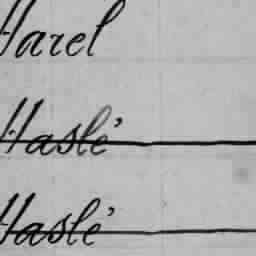 Harel
Haslé
Haslé